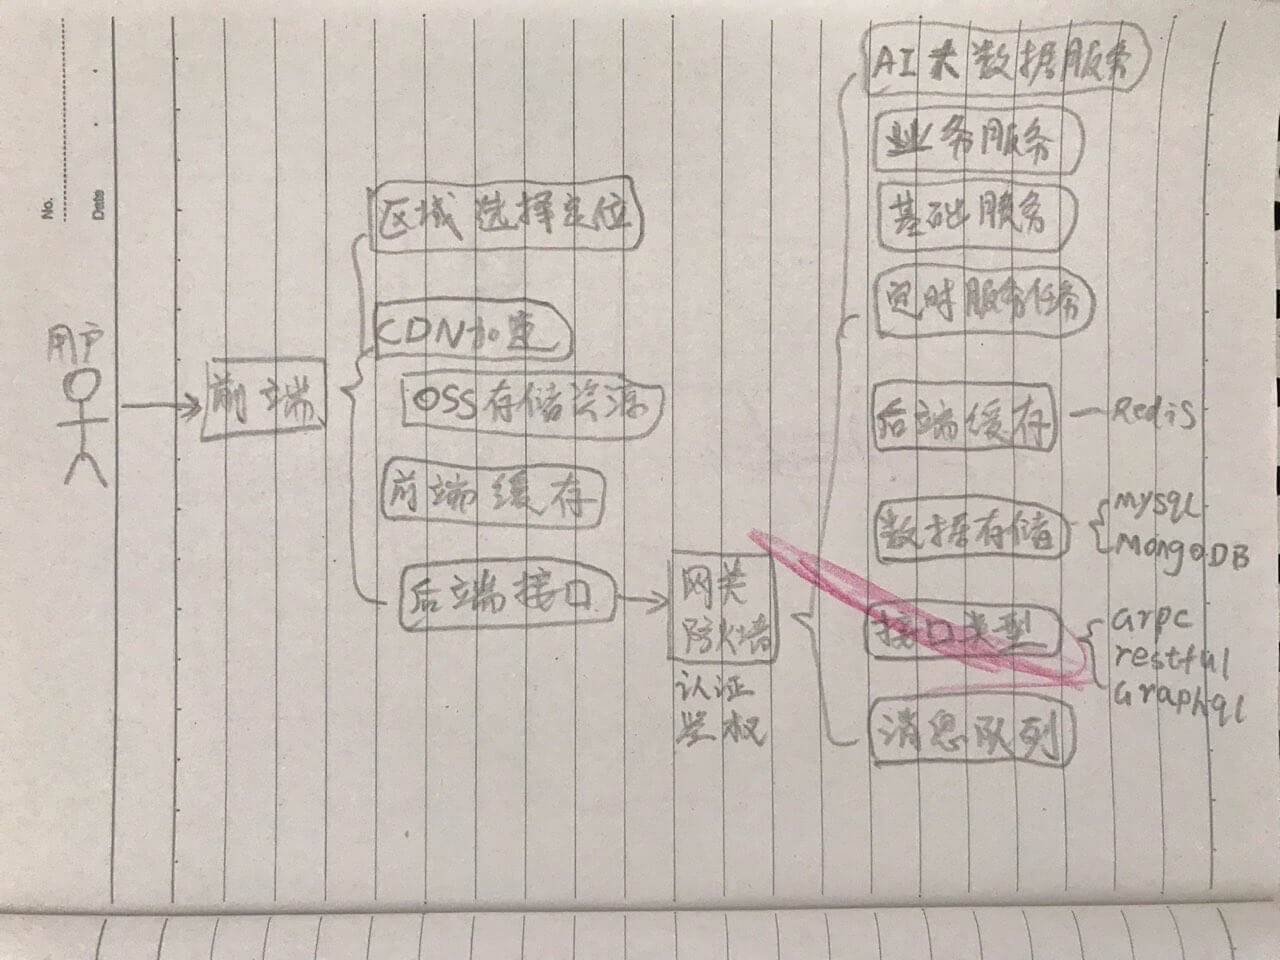 No.
Date
用户
前端
区域选择定位
CDN加速
OSS存储资源
前端缓存
后端接口
网关
防火墙
认证
鉴权
AI大数据服务
业务服务
基础服务
定时服务任务
后端缓存
Redis
数据存储
mysql
MongoDB
接口类型
Grpc
restful
Graphql
消息队列